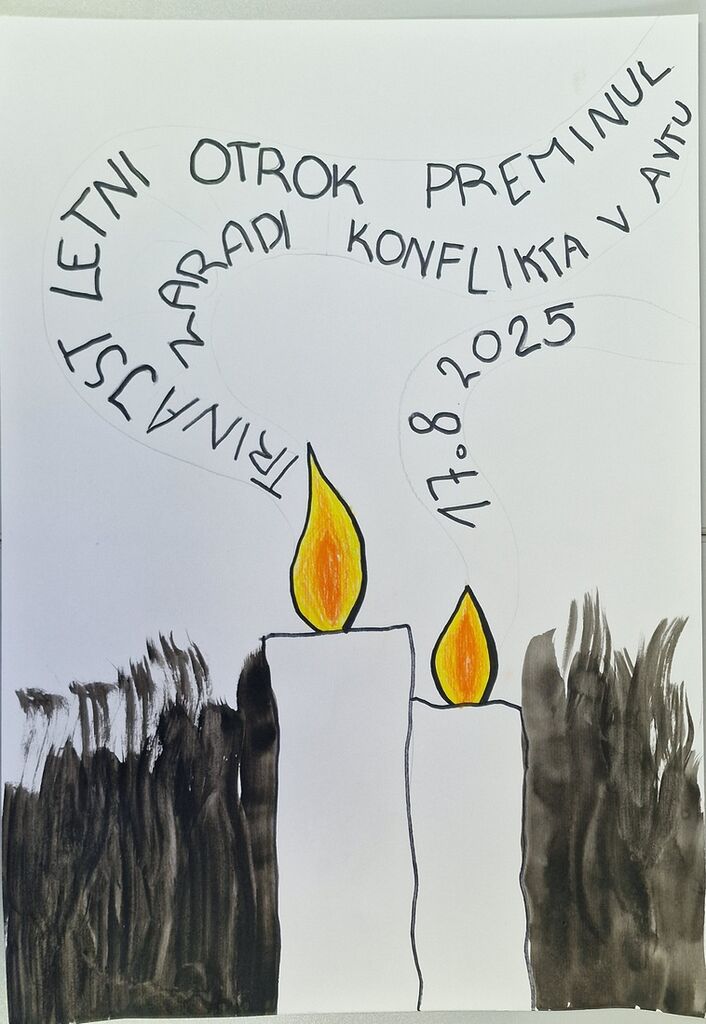 TRINAJST LETNI OTROK PREMINUL
ZARADI KONFLIKTA V AVTU
17.8 2025